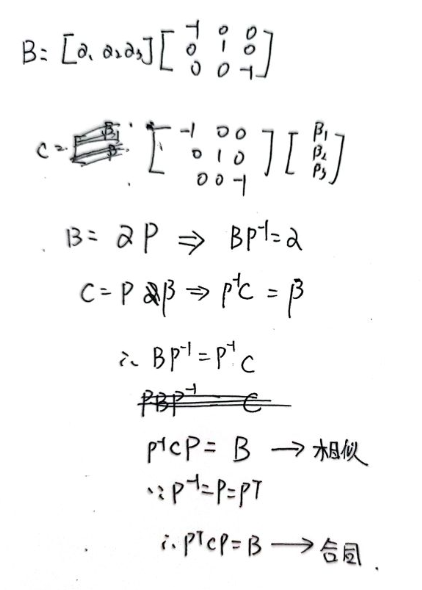 B= [α₁ α₂ α₃] [ -1 0 0
0 1 0
0 0 -1 ]
C= [ -1 0 0
0 1 0
0 0 -1 ] [ β₁
β₂
β₃ ]
B= αP ⇒ BP⁻¹=α
C=Pβ ⇒ P⁻¹C = β
∴ BP⁻¹=P⁻¹C
P⁻¹CP = B → 相似
∵ P⁻¹=P=Pᵀ
∴ PᵀCP=B → 合同.